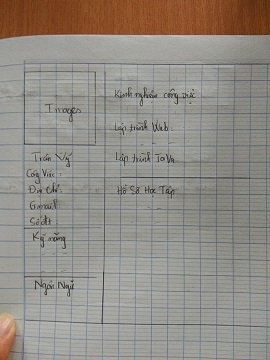 Images
Trần Vỹ
Công Việc :
Địa Chỉ :
Gmail :
Số đt :
Kỹ năng
Ngôn Ngữ
Kinh nghiệm công việc
Lập trình Web
Lập trình JaVa
Hồ Sơ Học Tập